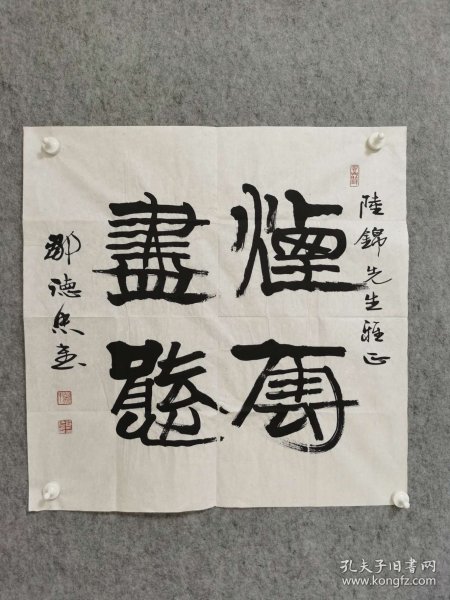 陸錦先生雅正
煙雲
盡態
鄒德忠書
孔夫子旧书网
www.kongfz.com